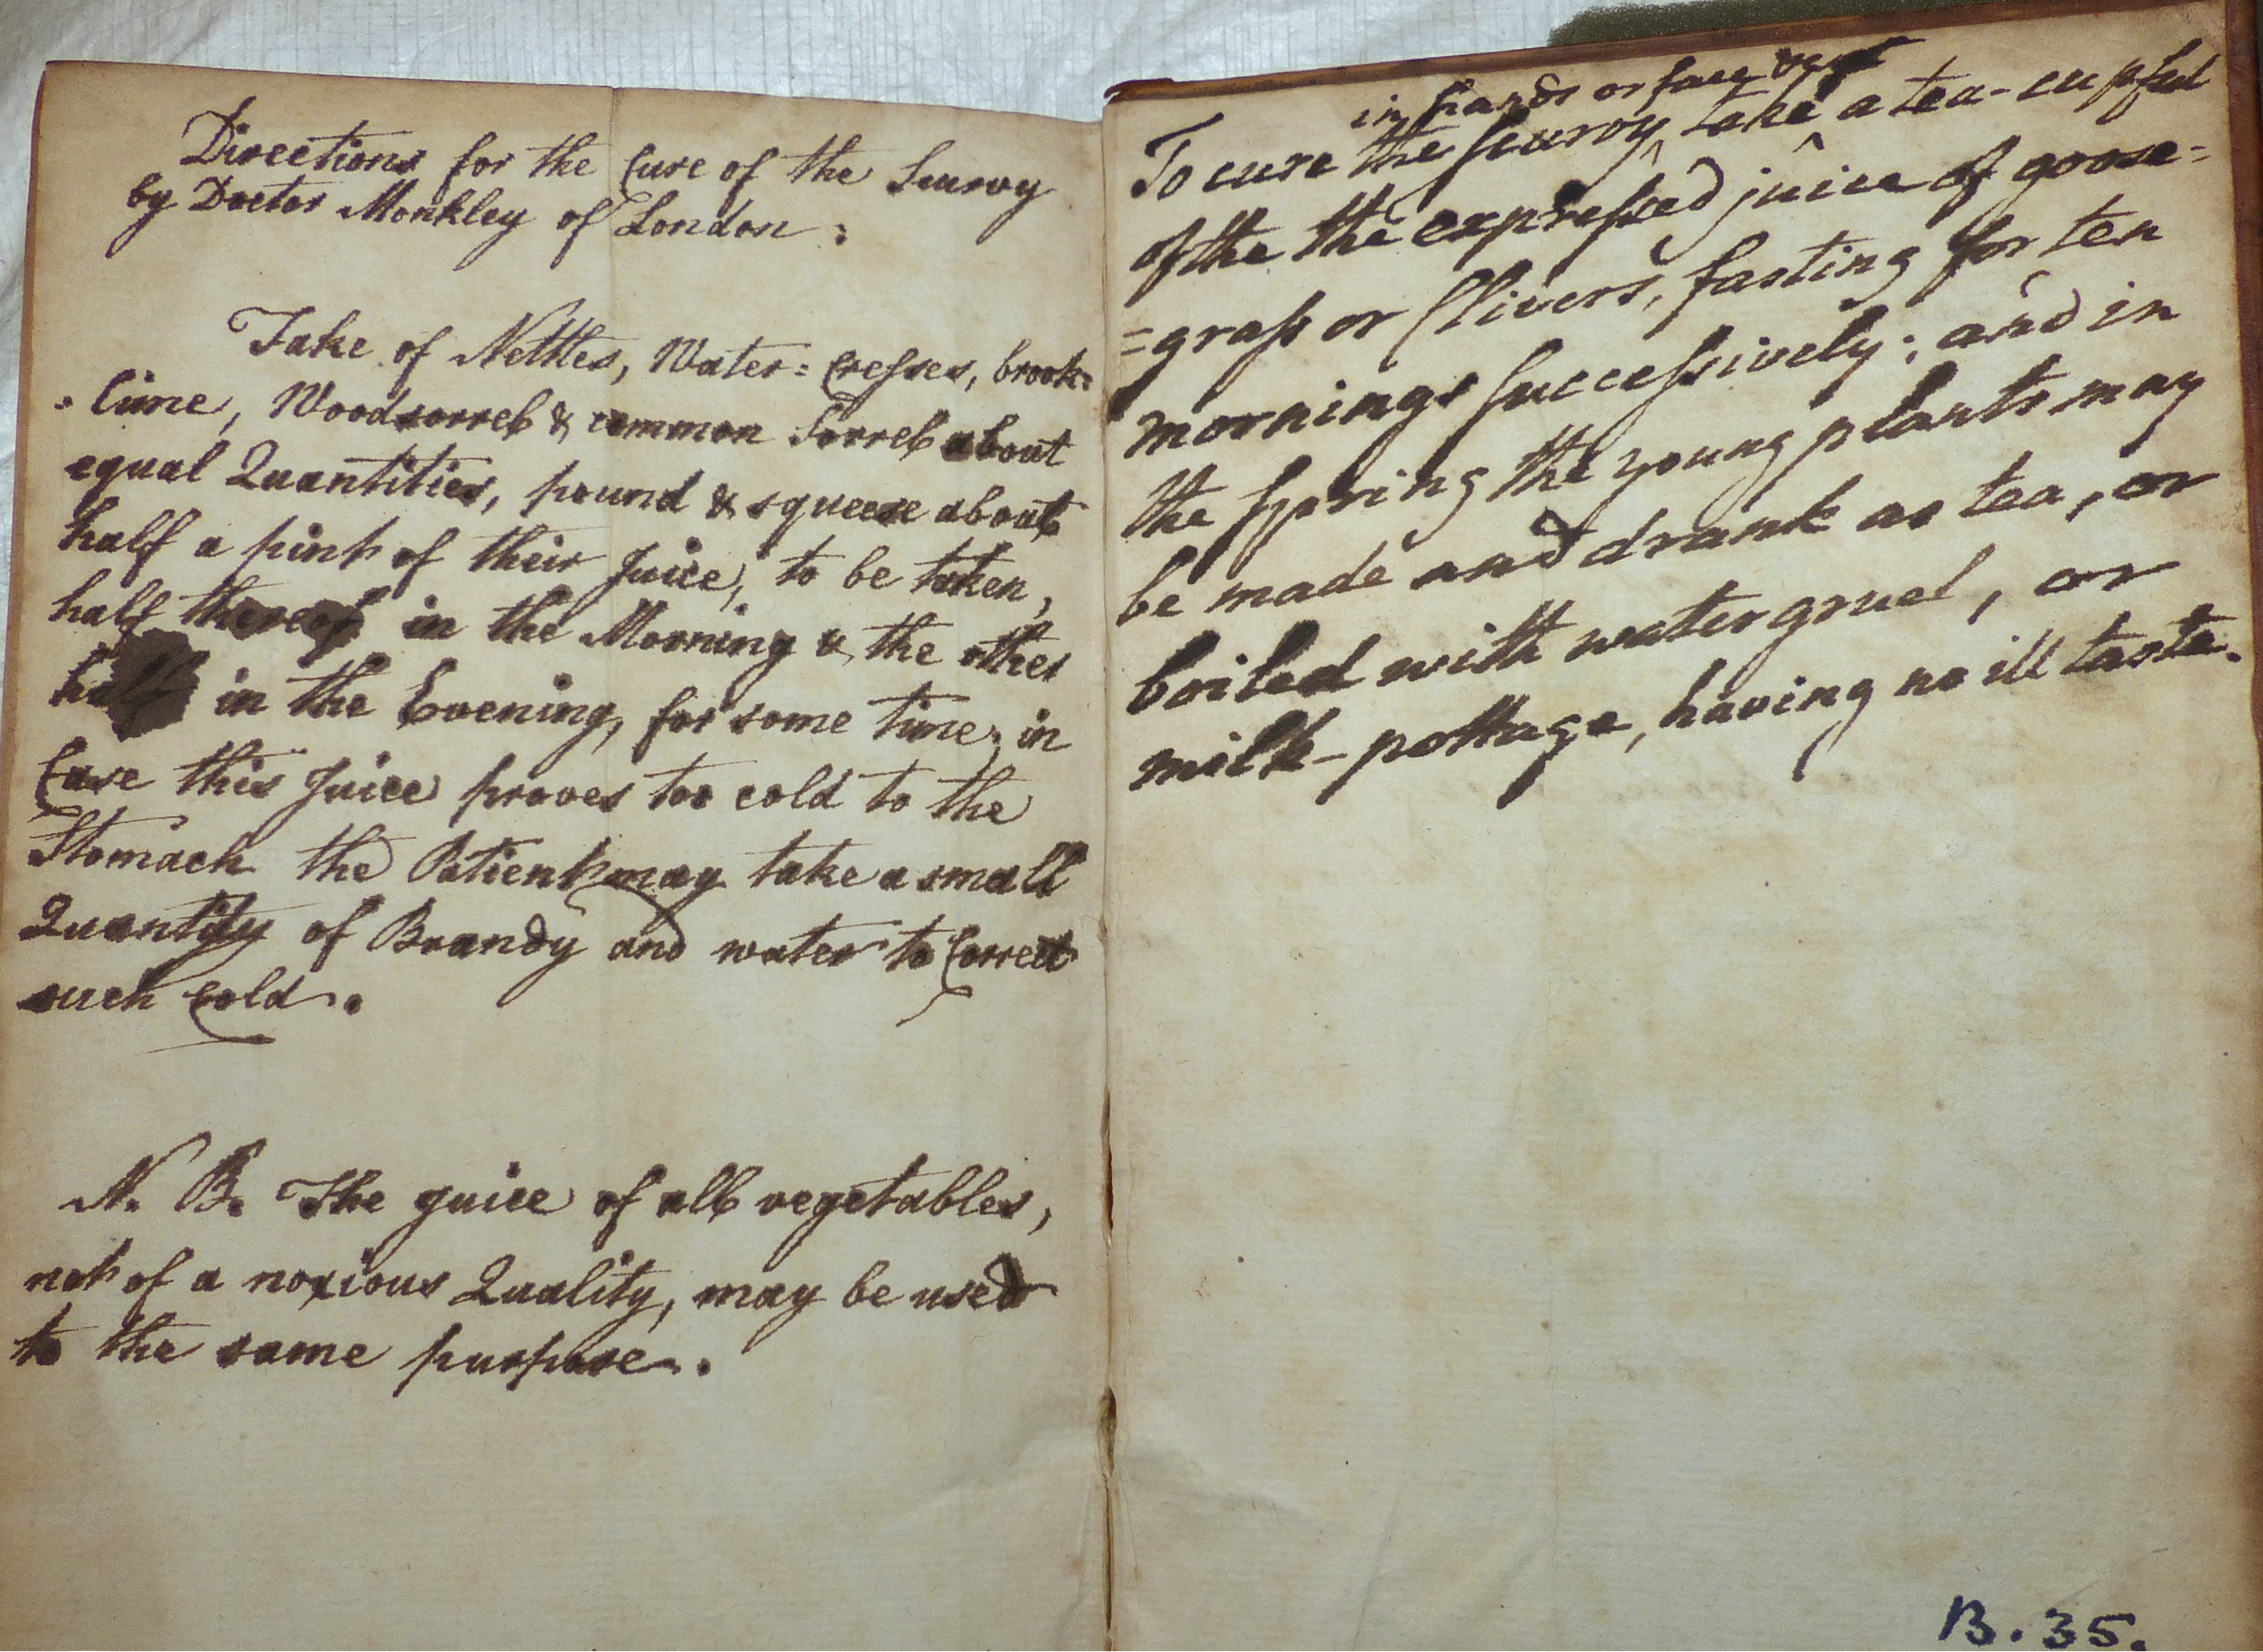 Directions for the Cure of the Scurvy
by Doctor Monkley of London:
Take of Nettles, Water=cresses, brook=
=lime, Woodsorrel & common Sorrel about
equal Quantities, pound & squeese about
half a pint of their Juice, to be taken,
half thereof in the Morning & the other
half in the Evening, for some time; in
Case this Juice proves too cold to the
Stomach the Patient may take a small
Quantity of Brandy and water to Correct
such Cold.
N. B. The juice of all vegetables,
not of a noxious Quality, may be used
to the same purpose.
in hands or face
To cure the scurvy, take a tea-cupful
of the the expressed juice of goose=
=grass or Clivers, fasting for ten
mornings successively; and in
the spring the young plants may
be made and drank as tea, or
boiled with water gruel, or
milk-pottage, having no ill taste.
B. 35.